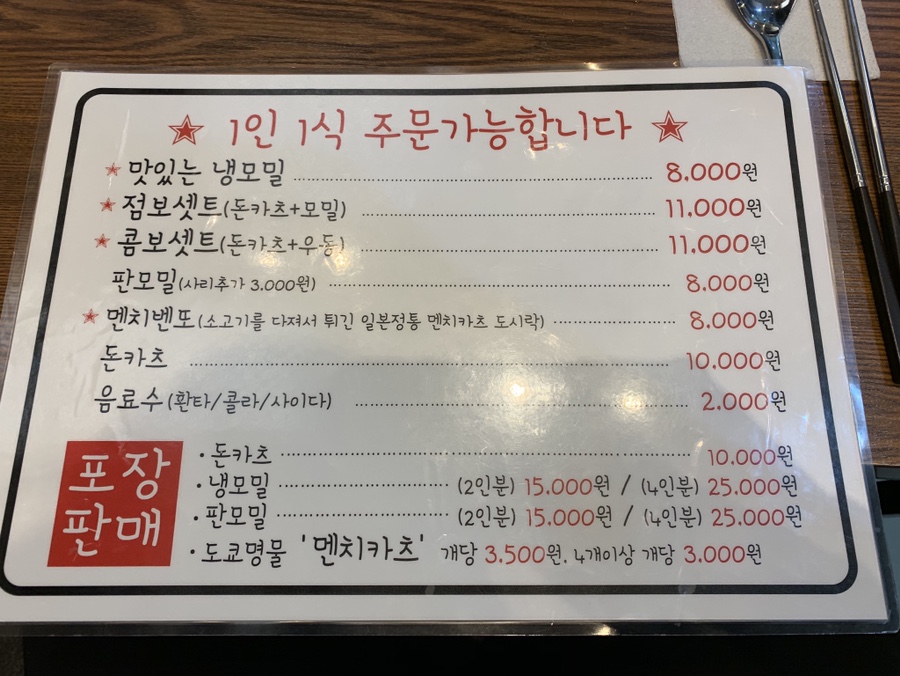 ★ 1인 1식 주문가능합니다 ★
★ 맛있는 냉모밀 8,000원
★ 점보셋트(돈카츠+모밀) 11,000원
★ 콤보셋트(돈카츠+우동) 11,000원
판모밀(사리추가 3.000원) 8.000원
★ 멘치벤또(소고기를 다져서 튀긴 일본정통 멘치카츠 도시락) 8.000원
돈카츠 10.000원
음료수(환타/콜라/사이다) 2.000원
포장판매
· 돈카츠 10.000원
· 냉모밀 (2인분) 15.000원 / (4인분) 25.000원
· 판모밀 (2인분) 15.000원 / (4인분) 25.000원
· 도쿄명물 '멘치카츠' 개당 3.500원. 4개이상 개당 3.000원